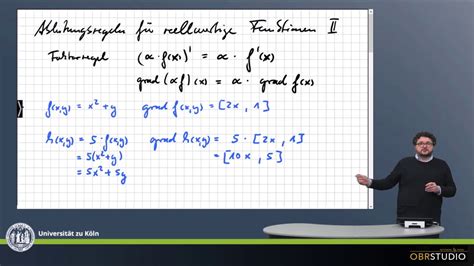 Ableitungsregeln für reellwertige Funktionen II
Faktorregel (α · f(x))' = α · f'(x)
grad (αf)(x) = α · grad f(x)
f(x,y) = x² + y grad f(x,y) = [2x , 1]
h(x,y) = 5 · f(x,y) grad h(x,y) = 5 · [2x , 1]
= 5(x²+y) = [10x , 5]
= 5x² + 5y
Universität zu Köln
OBRSTUDIO